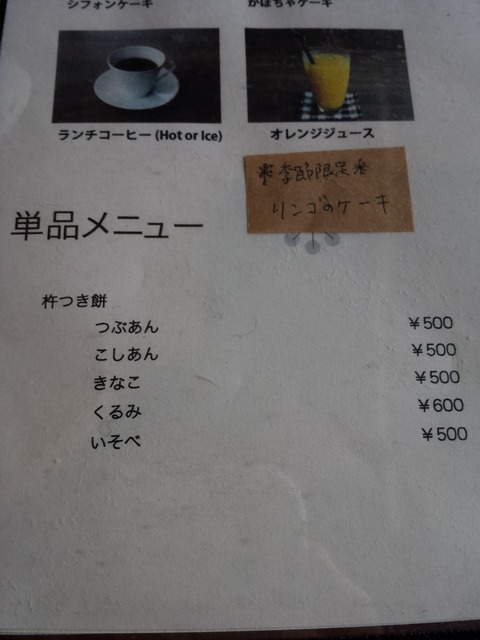 シフォンケーキ
かぼちゃケーキ
ランチコーヒー (Hot or Ice)
オレンジジュース
*季節限定*
リンゴのケーキ
単品メニュー
杵つき餅
つぶあん ¥500
こしあん ¥500
きなこ ¥500
くるみ ¥600
いそべ ¥500